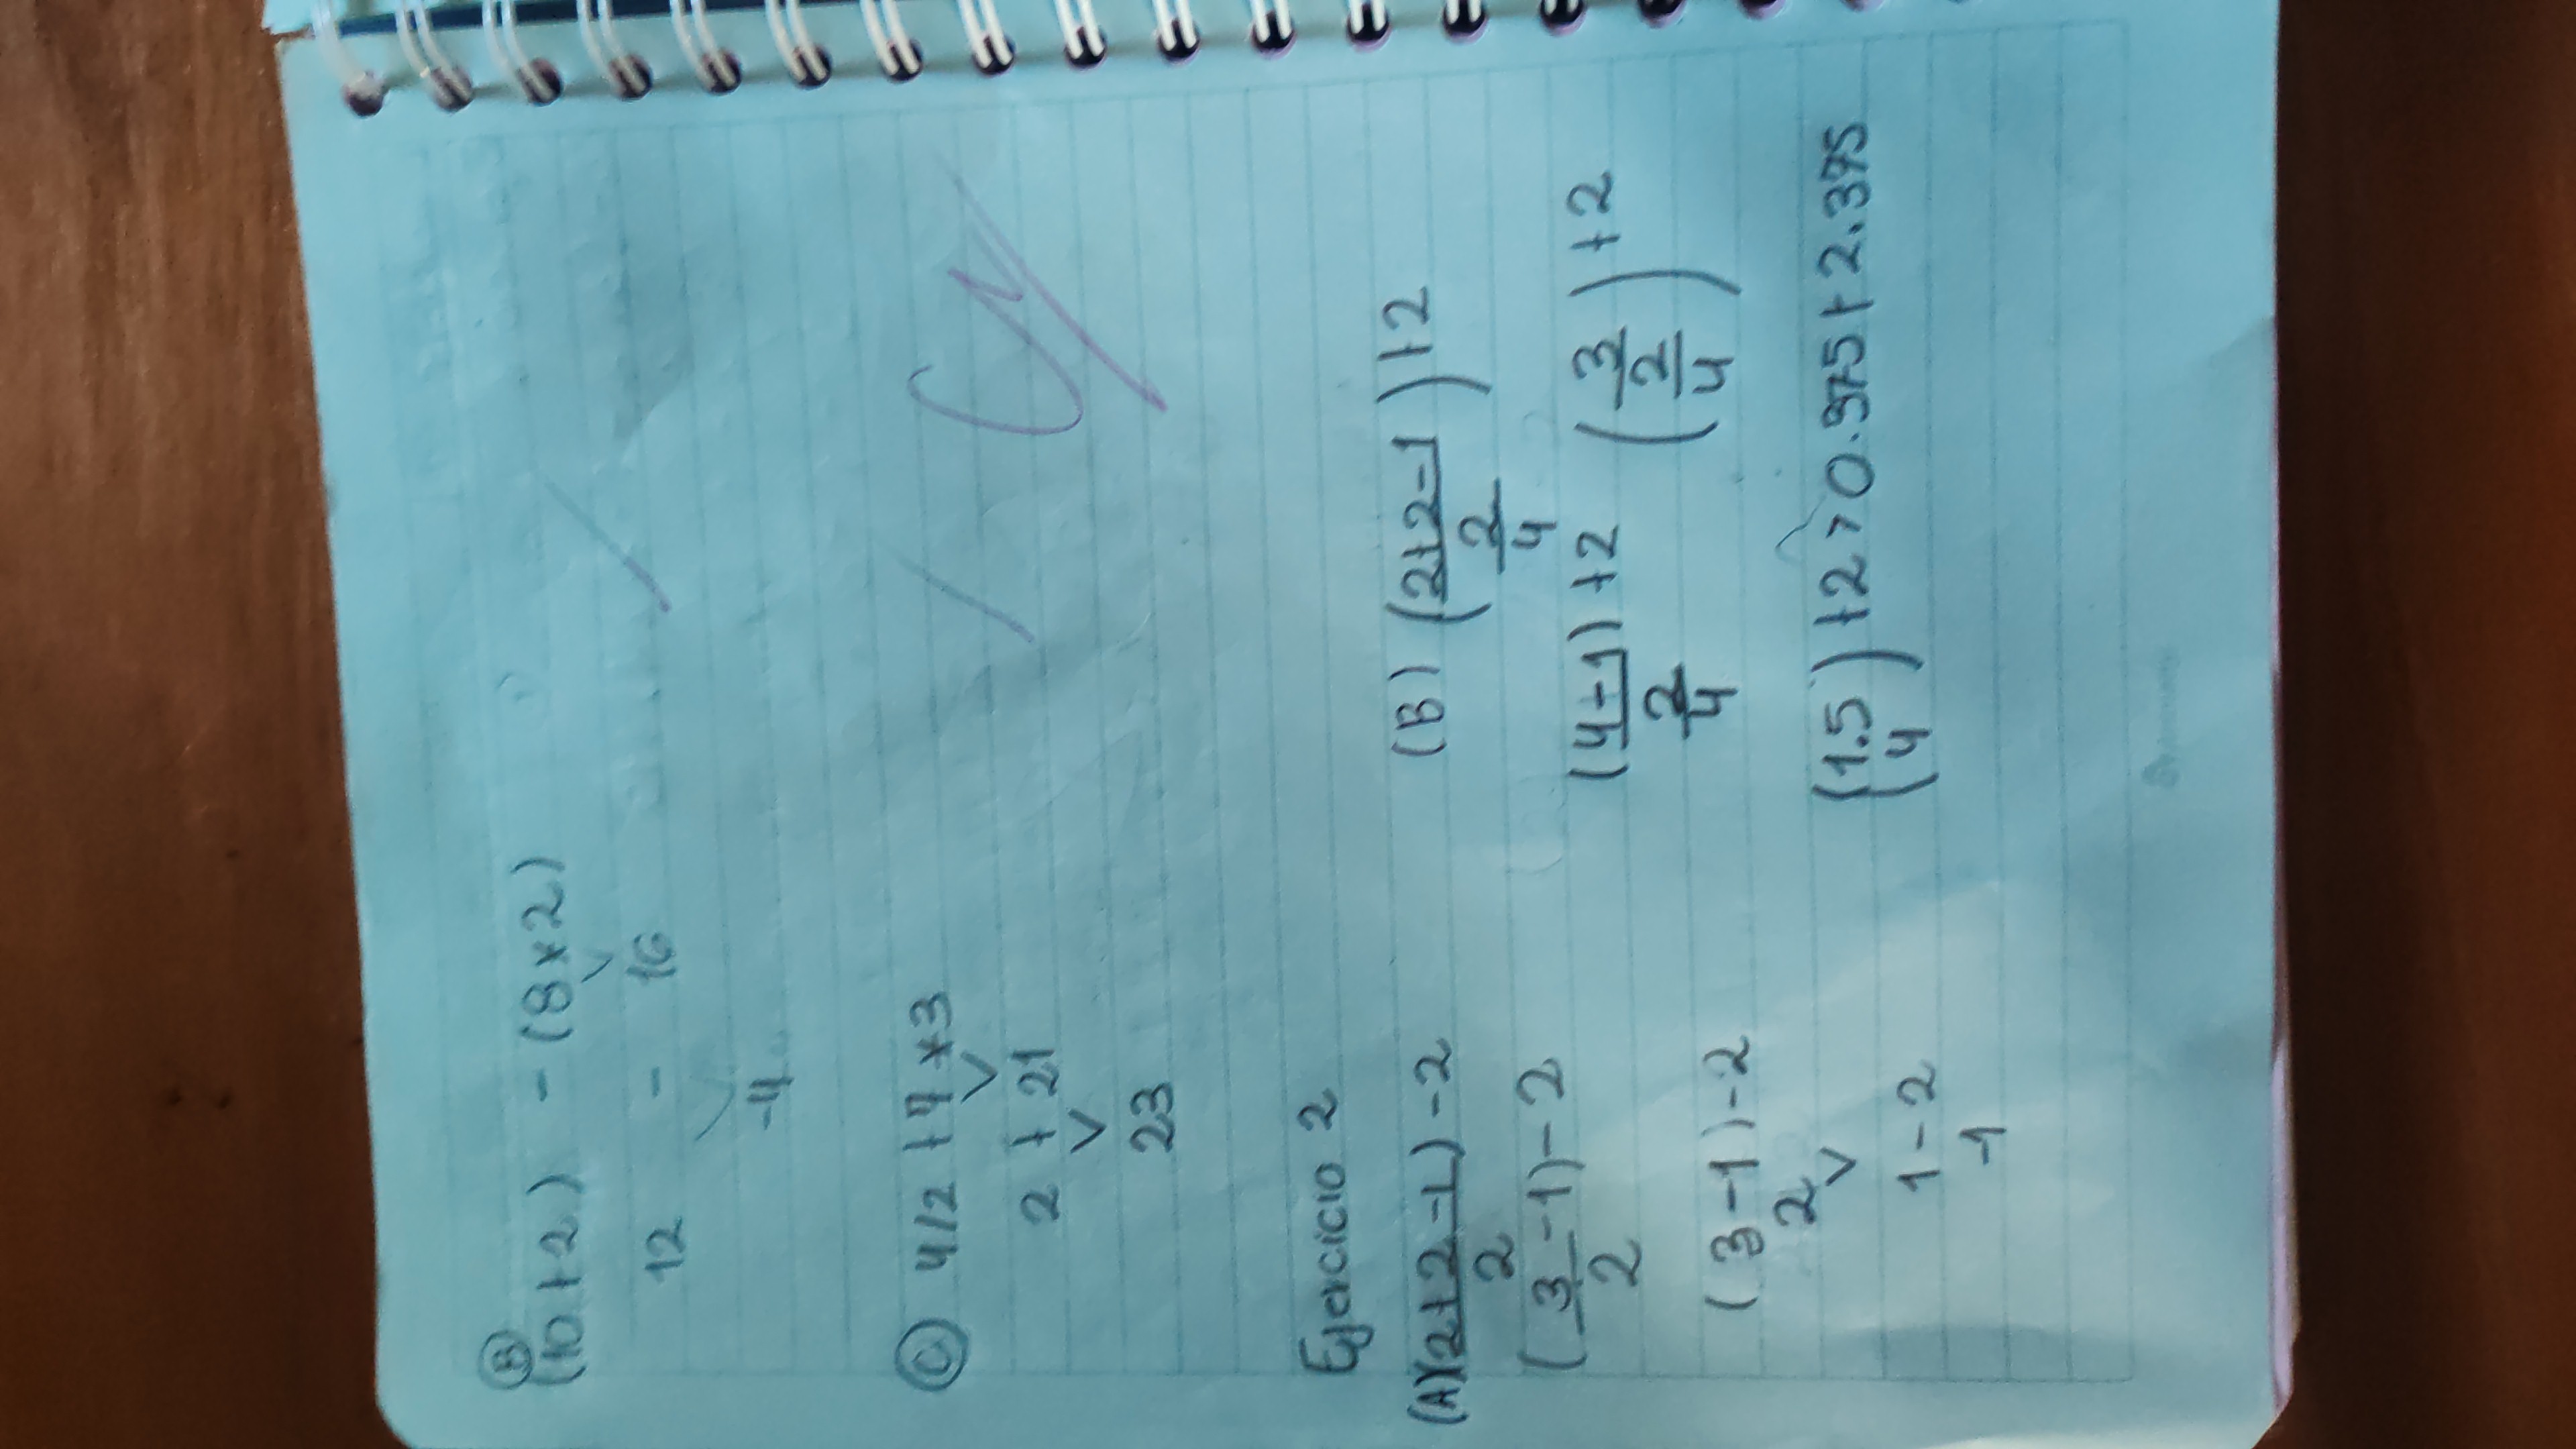 (B)
(10+2) - (8*2)
12 - 16
-4
(C) 4/2 +7*3
2 + 21
23
Ejercicio 2
(A)(2+2-1)-2
2
(3-1)-2
2
(3-1)-2
2
1-2
-1
(B) (2+2-1)+2
2
4
(4-1)+2
2
4
(3)+2
2
4
(1.5)+2>0.375+2.375
(4)